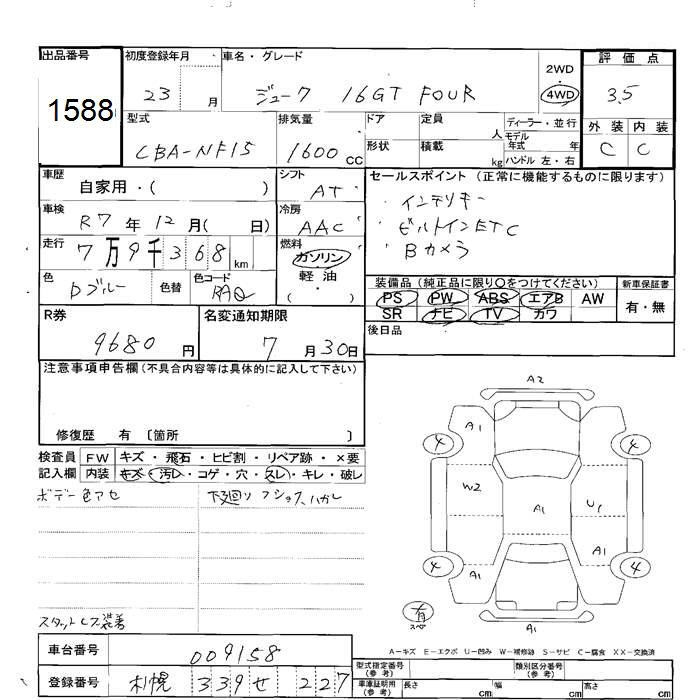 出品番号 初度登録年月 車名・グレード 2WD・4WD 評価点
1588 23 月 ジューク 16GT FOUR 3.5
型式 排気量 ドア 定員 人 ディーラー・並行 外装 内装
CBA-NF15 1600 cc 形状 積載 kg モデル年式 年 C C
ハンドル 左・右
車歴 自家用・( ) シフト AT セールスポイント (正常に機能するものに限ります)
車検 R7 年 12 月( 日) 冷房 AAC ・インテリキー
走行 7万9千368 km 燃料 ガソリン ・ビルトインETC
軽油 ( ・ ) ・Bカメラ
色 Dブルー 色替 色コード RAQ 装備品 (純正品に限り○をつけてください) 新車保証書
PS PW ABS エアB AW 有・無
SR ナビ TV カワ
R券 9680 円 名変通知期限 7月30日 後日品
注意事項申告欄 (不具合内容等は具体的に記入して下さい)
修復歴 有 〔箇所 〕
検査員 FW キズ・飛石・ヒビ割・リペア跡・×要
記入欄 内装 キズ・汚レ・コゲ・穴・スレ・キレ・破レ
ボデー色アセ 下廻り
スタットレス装着
A2
4 A1 4
W2 A1 U1
A1
4 A1 4
有 スペア A1
A-キズ E-エクボ U-凹み W-補修跡 S-サビ C-腐食 XX-交換済
車台番号 009158 型式指定番号 (参考) 類別区分番号 (参考)
登録番号 札幌 339 せ 227 車庫証明用 (参考) 長さ cm 幅 cm 高さ cm